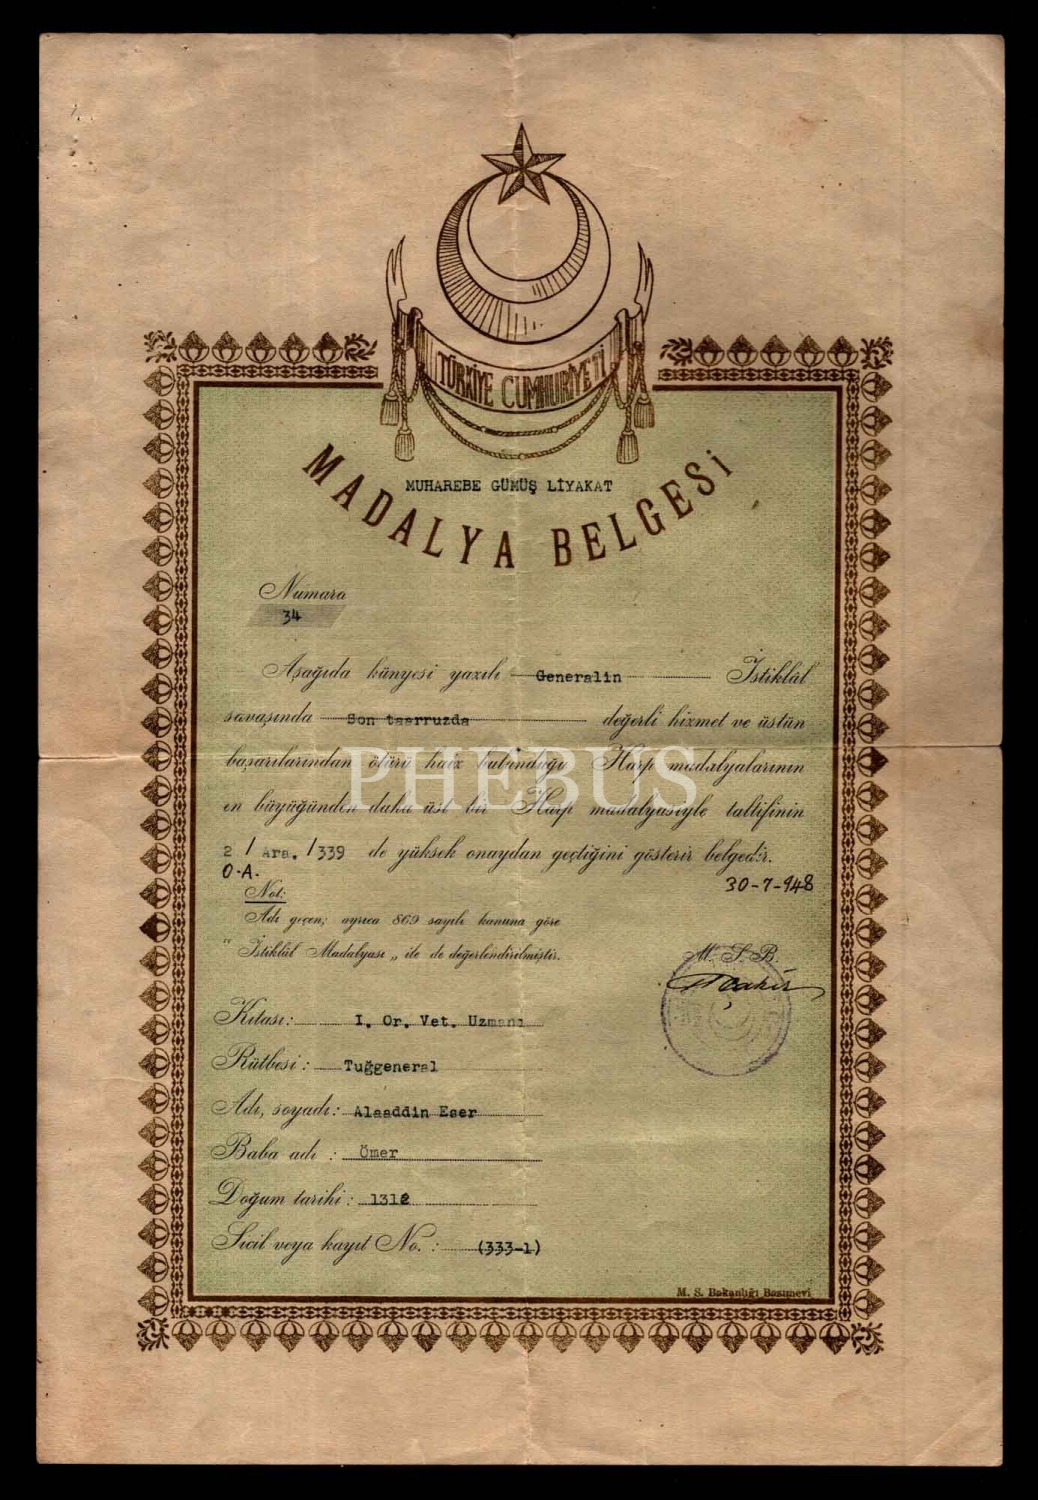 TÜRKİYE CUMHURİYETİ
MUHAREBE GÜMÜŞ LİYAKAT
MADALYA BELGESİ
Numara
34
Aşağıda künyesi yazılı Generalin İstiklâl
savaşında Son taarruzda değerli hizmet ve üstün
başarılarından ötürü haiz bulunduğu Harp madalyalarının
en büyüğünden daha üst bir Harp madalyasiyle taltifinin
2 / Ara. /339 de yüksek onaydan geçtiğini gösterir belgedir.
O.A. 30-7-948
Not:
Adı geçen; ayrıca 869 sayılı kanuna göre
"İstiklâl Madalyası„ ile de değerlendirilmiştir.
M. S. B.
Kıtası: I. Or. Vet. Uzmanı
Rütbesi: Tuğgeneral
Adı, soyadı: Alaaddin Eser
Baba adı: Ömer
Doğum tarihi: 1312
Sicil veya kayıt No.: (333-1)
M. S. Bakanlığı Basımevi
PHEBUS